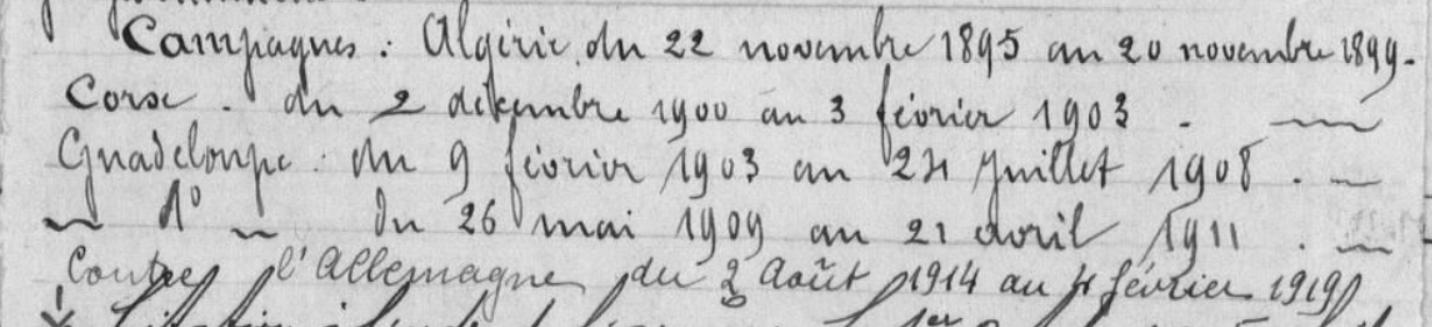 Campagnes : Algérie du 22 novembre 1895 au 20 novembre 1899.
Corse . du 2 décembre 1900 au 3 février 1903 . —
Guadeloupe . du 9 février 1903 au 24 juillet 1908 . —
— d° — du 26 mai 1909 au 21 avril 1911 . —
Contre l'Allemagne du 2 Août 1914 au 4 février 1919